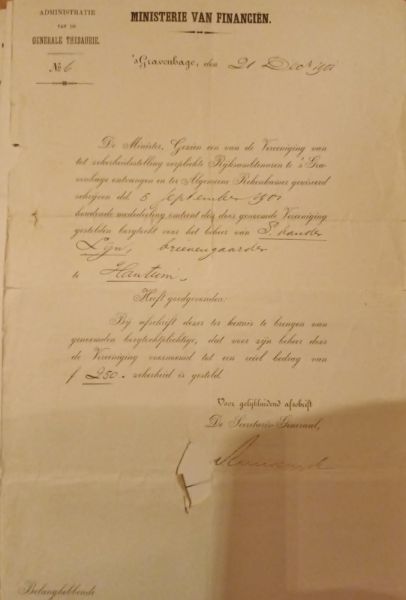 ADMINISTRATIE
VAN DE
GENERALE THESAURIE.
№ 6
MINISTERIE VAN FINANCIËN.
's Gravenhage, den 21 Decr 1901
De Minister, Gezien een van de Vereeniging van
tot zekerheidsstelling verplichte Rijksambtenaren te 's Gra-
venhage ontvangen en ter Algemeene Rekenkamer geviseerd
schrijven dd. 5 September 1901
houdende mededeeling omtrent den door genoemde Vereeniging
gestelden borgtocht voor het beheer van S. van der
Lyn,
te Hantum.
Heeft goedgevonden:
Bij afschrift dezer ter kennis te brengen van
genoemden borgtochtplichtige, dat voor zijn beheer door
de Vereeniging voornoemd tot een reëel bedrag van
f 250.- zekerheid is gesteld.
Voor gelijkluidend afschrift
De Secretaris-Generaal,
Belanghebbende